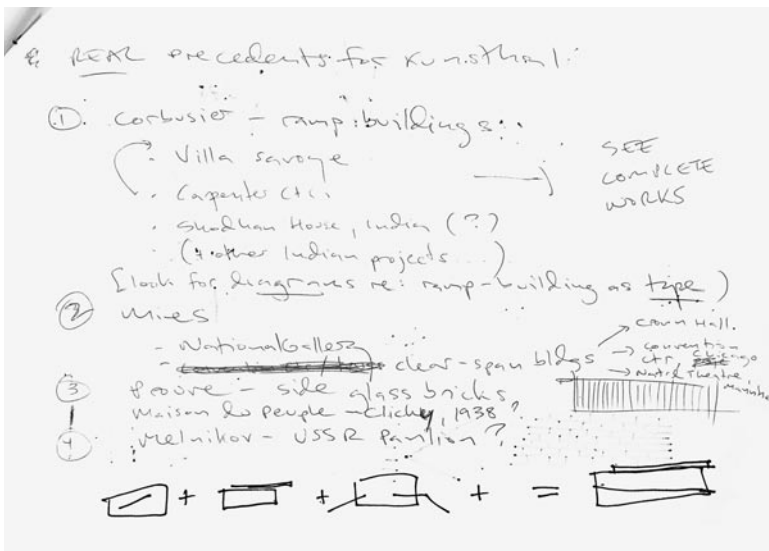 & REAL precedents for Kunsthal:
① Corbusier - ramp buildings:
· Villa Savoye
· Carpenter Ctr.
· Shodhan House, India (?)
· (+ other Indian projects...)
SEE
COMPLETE
WORKS
[look for diagrams re: ramp-building as type)
② Mies
- National Gallery
- clear-span bldgs
→ Crown Hall.
→ convention
ctr, Chicago
→ Nat'l Theatre
③ Prouve - side glass bricks
Maison du Peuple - Clichy, 1938?
④ Melnikov - USSR Pavilion?
+ + + =